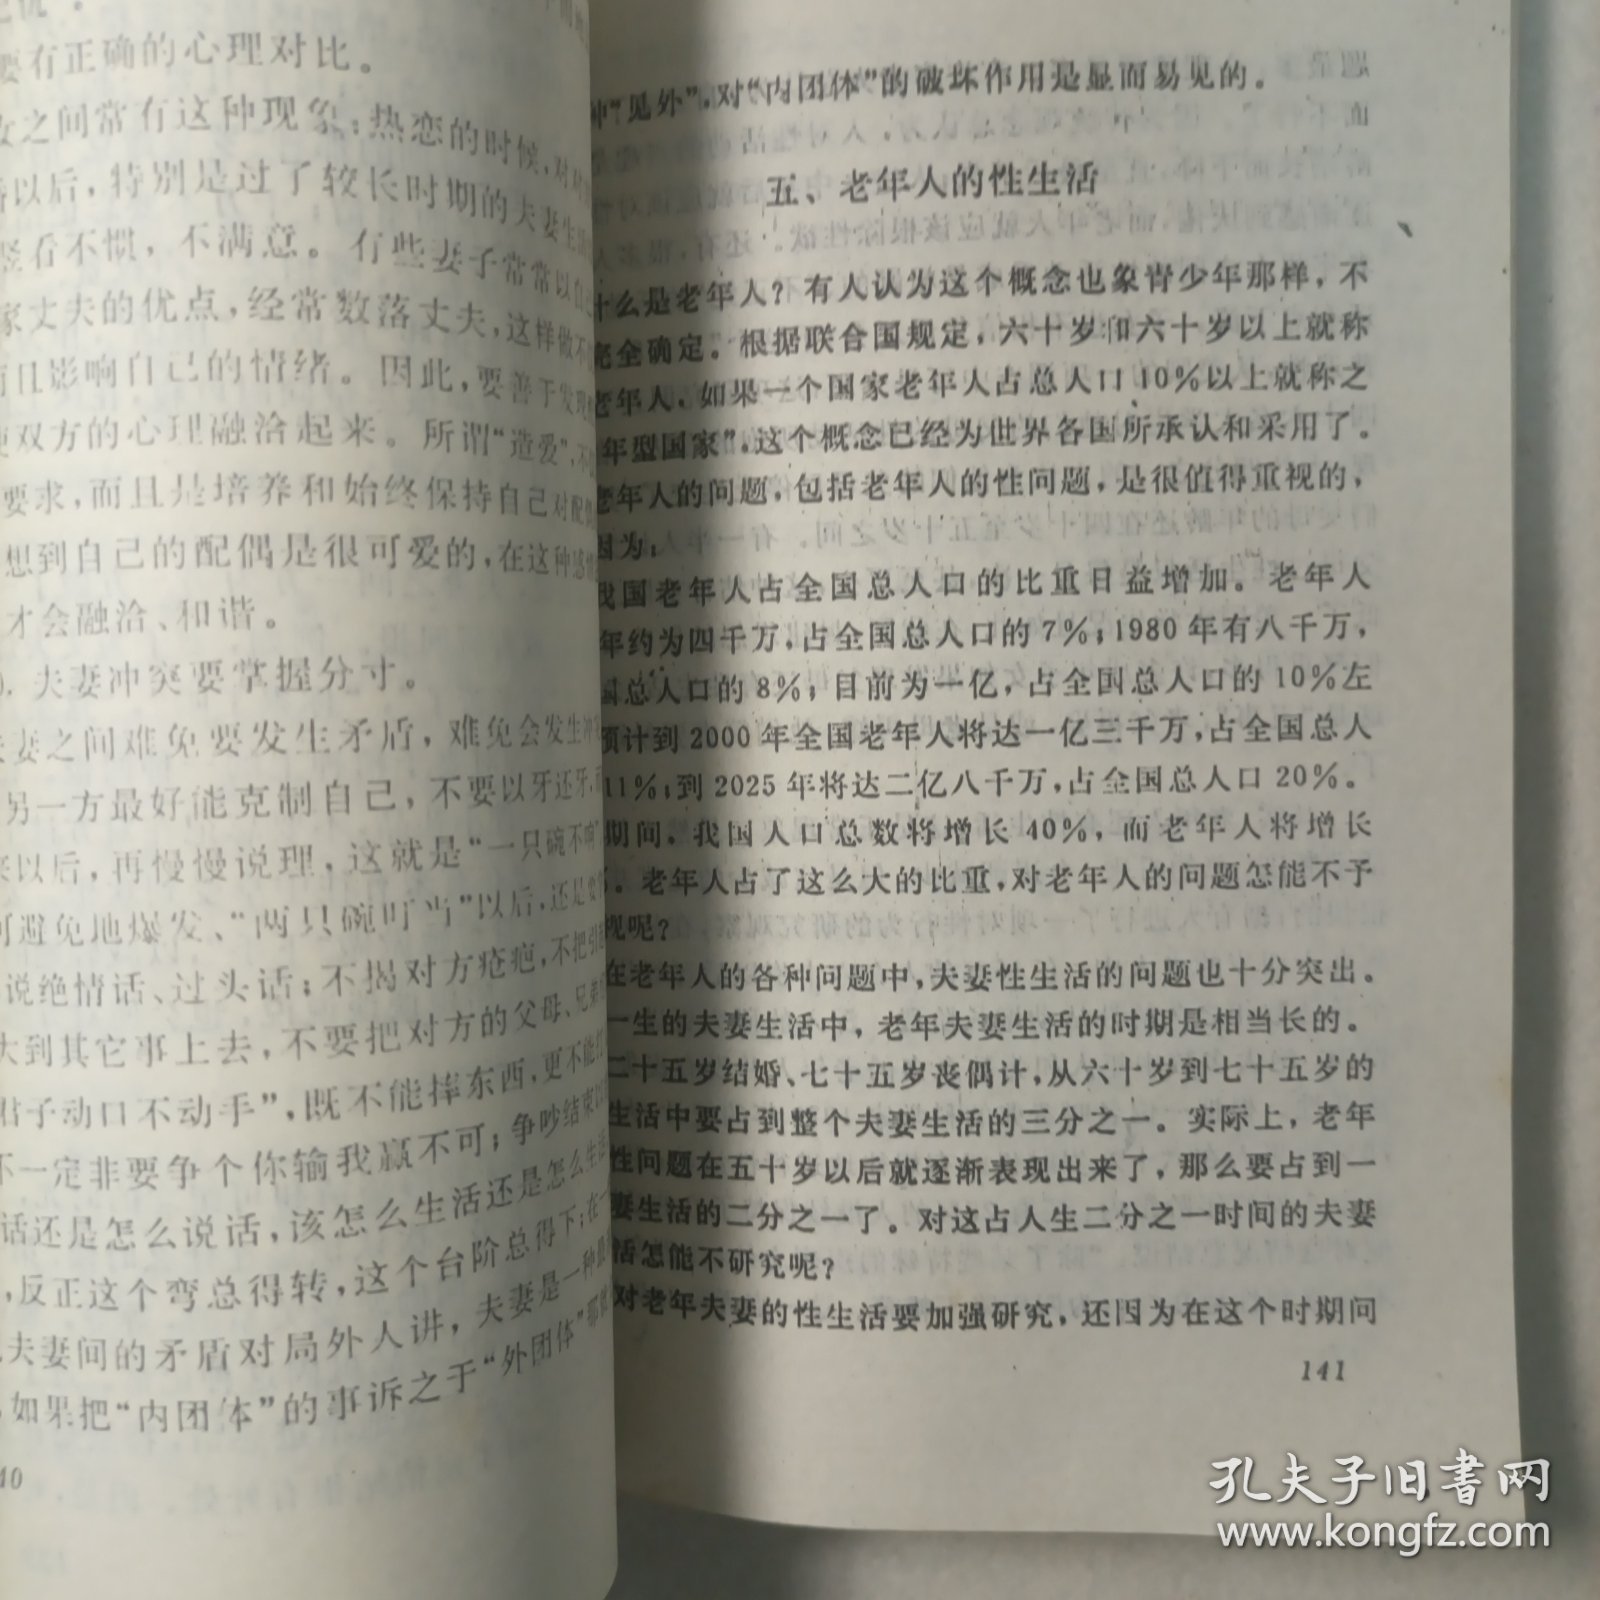 要有正确的心理对比。
女之间常有这种现象：热恋的时候，对
以后，特别是过了较长时期的夫妻生活
竖看不惯，不满意。有些妻子常常以自己
家丈夫的优点，经常数落丈夫，这样做不
而且影响自己的情绪。因此，要善于发现
使双方的心理融洽起来。所谓“造爱”，不
要求，而且是培养和始终保持自己对配
想到自己的配偶是很可爱的，在这种感
才会融洽、和谐。
．夫妻冲突要掌握分寸。
夫妻之间难免要发生矛盾，难免会发生冲
另一方最好能克制自己，不要以牙还牙，
来以后，再慢慢说理，这就是“一只碗不响”
可避免地爆发、“两只碗叮当”以后，还是要
说绝情话、过头话；不揭对方疮疤，不把引
大到其它事上去，不要把对方的父母、兄弟
君子动口不动手”，既不能摔东西，更不能
不一定非要争个你输我赢不可；争吵结束以
话还是怎么说话，该怎么生活还是怎么生活
，反正这个弯总得转，这个台阶总得下；在
夫妻间的矛盾对局外人讲，夫妻是一种
如果把“内团体”的事诉之于“外团体”那
40
种“见外”，对“内团体”的破坏作用是显而易见的。
五、老年人的性生活
什么是老年人？有人认为这个概念也象青少年那样，不
完全确定。根据联合国规定，六十岁和六十岁以上就称
老年人，如果一个国家老年人占总人口10%以上就称之
年型国家”，这个概念已经为世界各国所承认和采用了。
老年人的问题，包括老年人的性问题，是很值得重视的，
因为：
我国老年人占全国总人口的比重日益增加。老年人
年约为四千万，占全国总人口的7%；1980年有八千万，
国总人口的8%；目前为一亿，占全国总人口的10%左
预计到2000年全国老年人将达一亿三千万，占全国总人
11%；到2025年将达二亿八千万，占全国总人口20%。
期间，我国人口总数将增长40%，而老年人将增长
。老年人占了这么大的比重，对老年人的问题怎能不予
视呢？
在老年人的各种问题中，夫妻性生活的问题也十分突出。
一生的夫妻生活中，老年夫妻生活的时期是相当长的。
二十五岁结婚、七十五岁丧偶计，从六十岁到七十五岁的
生活中要占到整个夫妻生活的三分之一。实际上，老年
性问题在五十岁以后就逐渐表现出来了，那么要占到一
妻生活的二分之一了。对这占人生二分之一时间的夫妻
活怎能不研究呢？
对老年夫妻的性生活要加强研究，还因为在这个时期问
141
孔夫子旧书网
www.kongfz.com